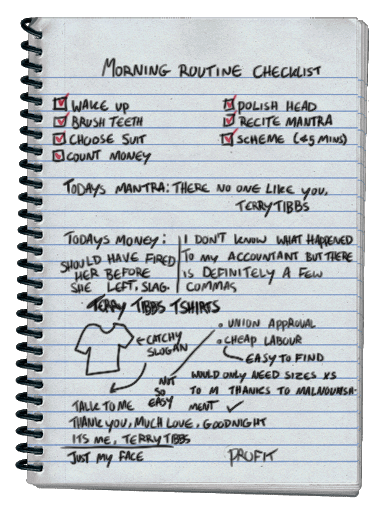 MORNING ROUTINE CHECKLIST
WAKE UP
BRUSH TEETH
CHOOSE SUIT
COUNT MONEY
POLISH HEAD
RECITE MANTRA
SCHEME (45 MINS)
TODAYS MANTRA: THERE NO ONE LIKE YOU,
TERRY TIBBS
TODAYS MONEY:
SHOULD HAVE FIRED
HER BEFORE
SHE LEFT, SLAG.
I DON'T KNOW WHAT HAPPENED
TO MY ACCOUNTANT BUT THERE
IS DEFINITELY A FEW
COMMAS
TERRY TIBBS TSHIRTS
CATCHY
SLOGAN
• UNION APPROVAL
• CHEAP LABOUR
EASY TO FIND
NOT
SO
EASY
WOULD ONLY NEED SIZES XS
TO M THANKS TO MALNOURISH-
MENT ✓
TALK TO ME
THANK YOU, MUCH LOVE, GOODNIGHT
ITS ME, TERRY TIBBS
JUST MY FACE
PROFIT